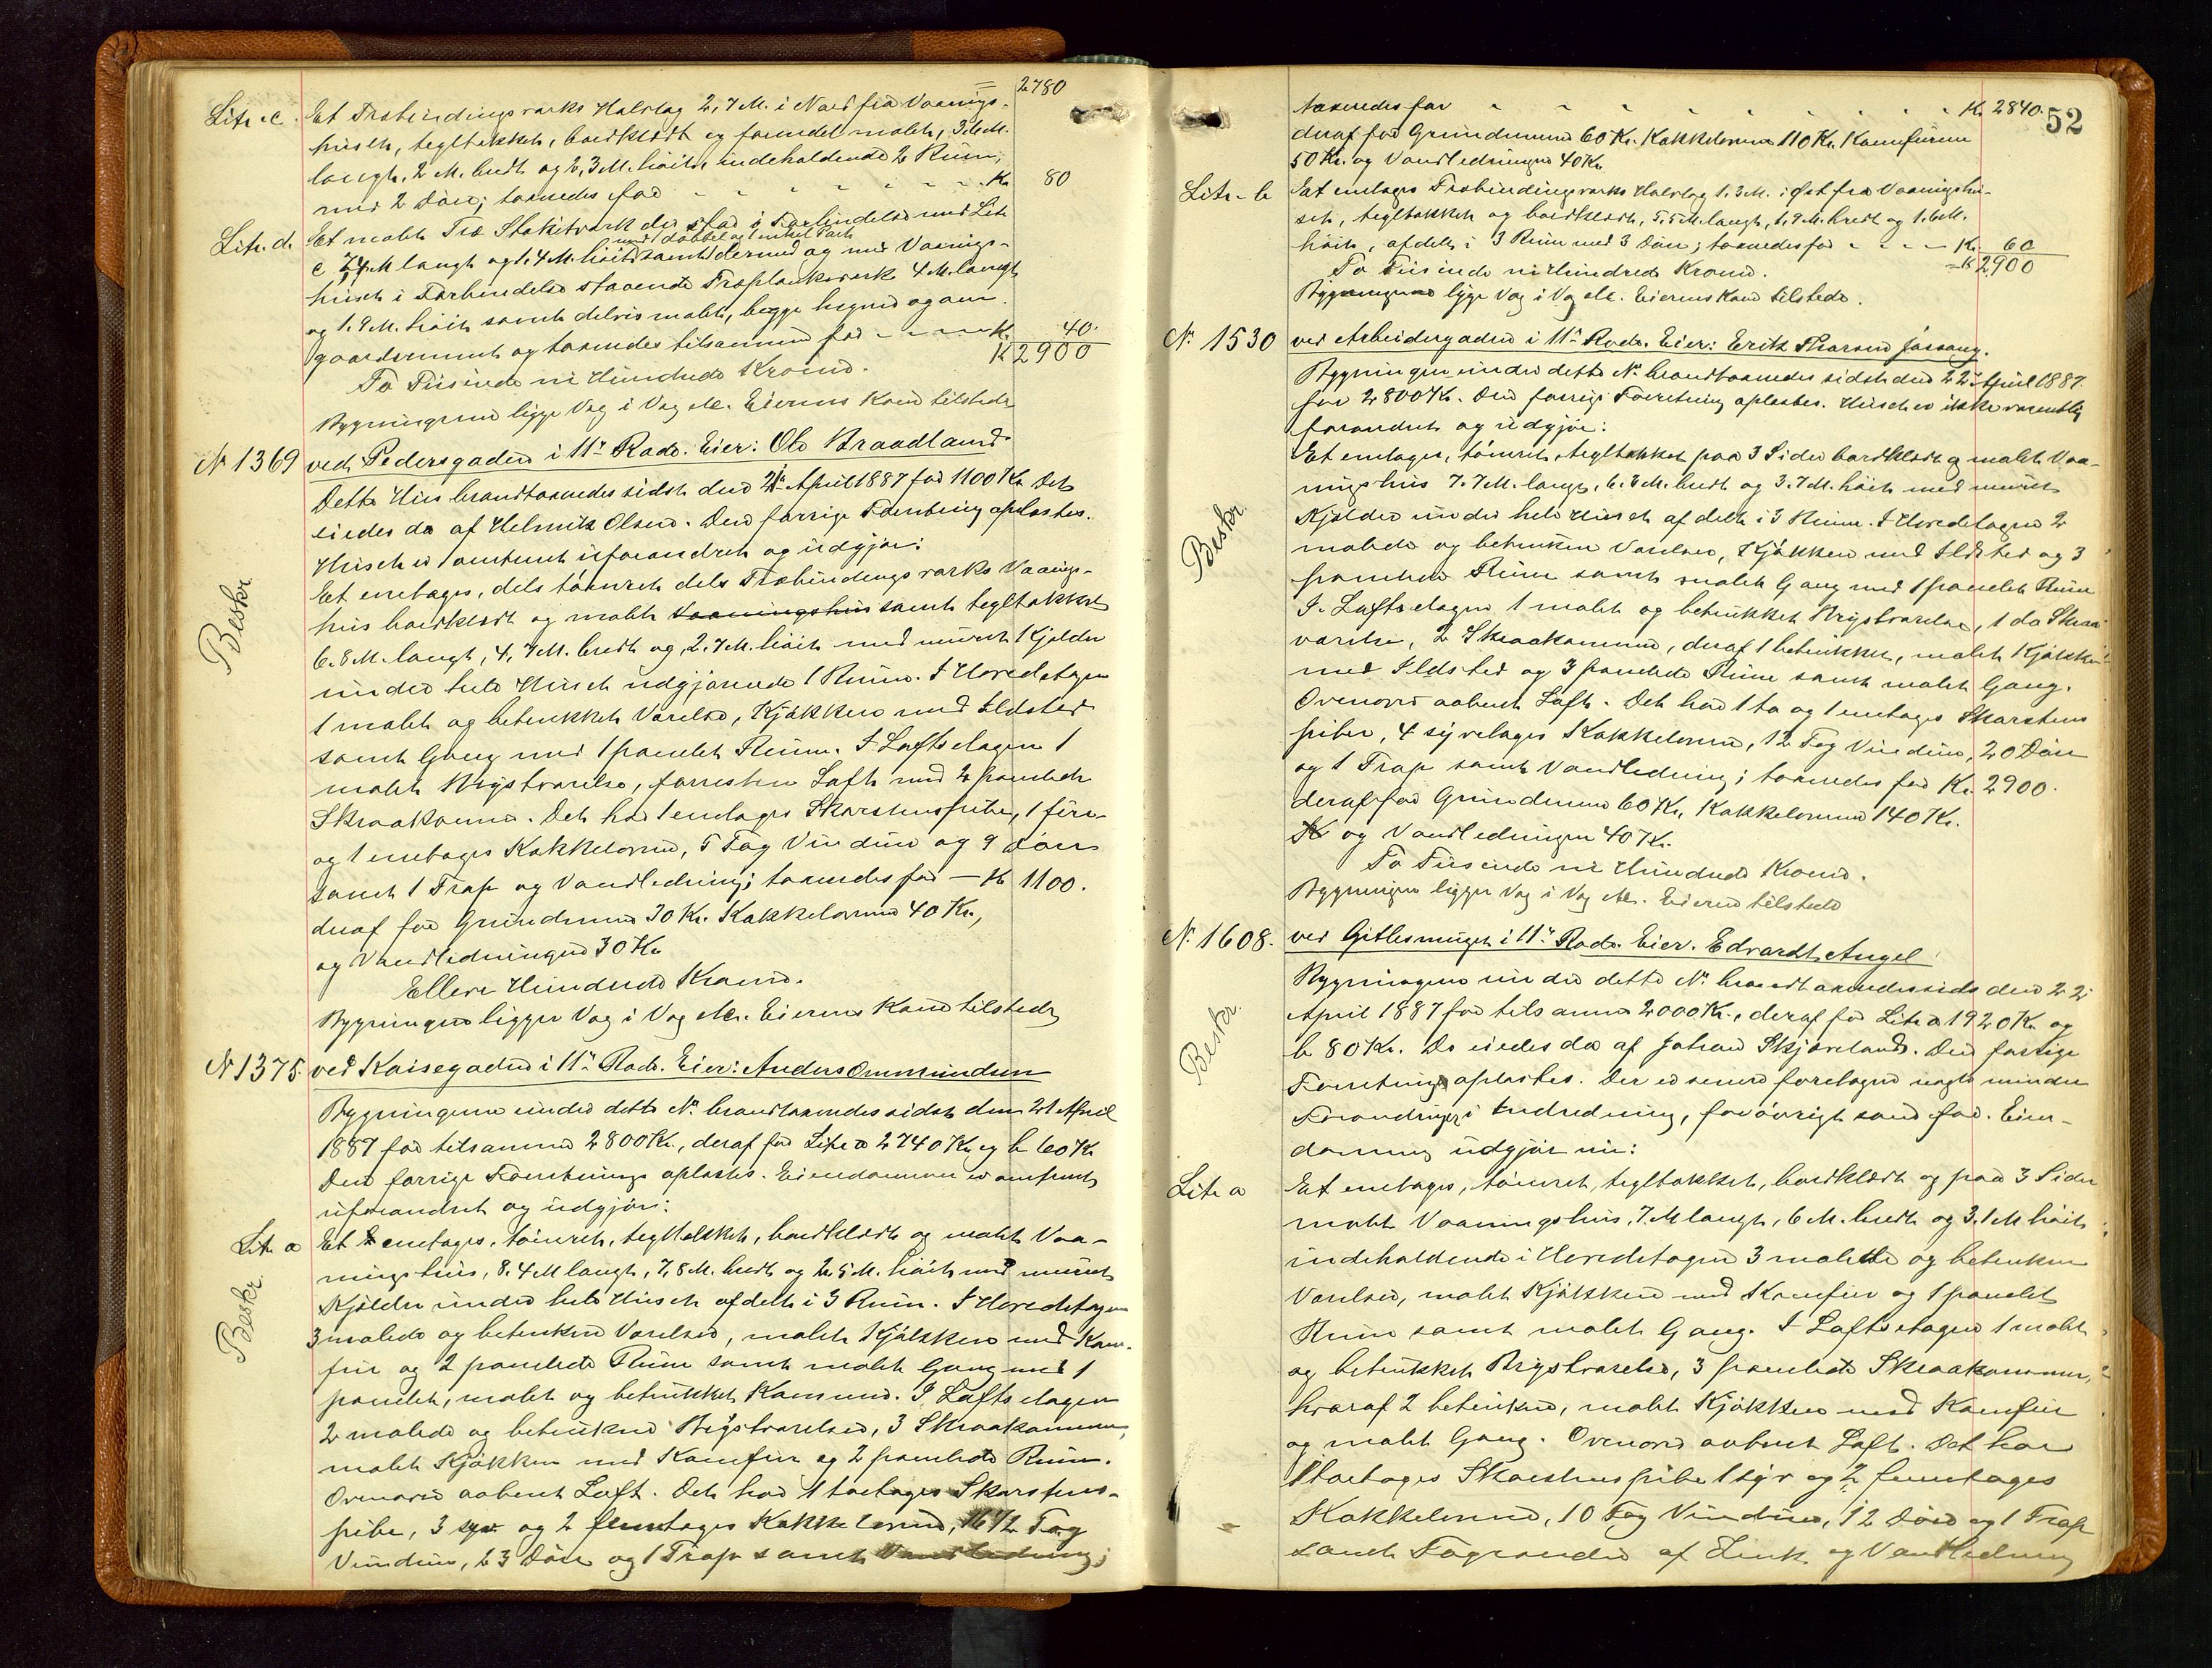 = 2780
Litr. c. Et Træbindingsværks Halvtag 2,7 M. i Nord fra Vaanings-
huset, tegltækket, bordklædt og foroendel malet, 3.6 M.
langt, 2 M. bredt og 2,3 M. høit, indeholdende 2 Rum,
med 2 Døre; taxeredes for - - - - - - - Kr. 80
Litr. d. Et malet Træ Stakitværk der staar i Forbindelse med Litr
med 1 dobbel og 1 enkel Port
c 7,4 M langt og 1.4 M. høit samt dermed og med Vaanings-
huset i Forbindelse staaende Træplankeværk 4 M. langt
og 1.9 M. høit samt delvis malet, begge hegner og om
gaardsrummet og taxeredes tilsammen for - - - - Kr. 40.
K 2900
To Tusinde ni Hundrede Kroner.
Bygningerne ligge Vag i Vag etc. Eierens Kone tilstede
N 1369 ved Pedersgaden i 11te Rode. Eier: Ole Braadland
Dette Hus brandtaxeredes sidst den 21de April 1887 for 1100 Kr. Det
eiedes da af Helmik Olsen. Den forrige Forretning oplæstes.
Huset er omtrent uforandret og udgjør:
Beskr. Et enetages, dels tømret dels Træbindingsværks Vaanings-
hus bordklædt og malet Vaaningshus samt tegltækket
6.8 M. langt, 4,7 M. bredt og 2.7 M. høit med muret Kjelder
under hele Huset udgjørende 1 Rum. I Hovedetagen
1 malet og betrukket Værelse, Kjøkken med Ildsted
samt Gang med 1 panelet Rum. I Loftsetagen 1
malet Kvistværelse, forresten Loft med 2 panelede
Skraakamre. Det har 1 enetages Skorstenspibe, 1 fire-
og 1 enetages Kakkelovne, 5 Fag Vinduer og 9 Døre
samt 1 Trap og Vandledning; taxeredes for — Kr 1100.
deraf for Grundmuren 30 Kr. Kakkelovnene 40 Kr.,
og Vandledningen 30 Kr
Elleve Hundrede Kroner.
Bygningen ligger Vag i Vag etc. Eierens Kone tilstede
N 1375 ved Kaisegaden i 11te Rode. Eier: Anders Ommundsen
Bygningerne under dette No brandtaxeredes sidst den 21 April
1887 for tilsammen 2800 Kr., deraf for Litr a 2740 Kr og b 60 Kr
Den forrige Forretning oplæstes. Eiendommen er omtrent
uforandret og udgjør:
Litr. a Et enetages, tømret, tegltækket, bordklædt og malet Vaa-
Beskr. ningshus, 8.4 M langt, 7,8 M. bredt og 2.5 M. høit med muret
Kjelder under hele Huset afdelt i 3 Rum. I Hovedetagen
3 malede og betrukne Værelser, malet Kjøkken med Kom-
fur og 2 panelede Rum samt malet Gang med 1
panelet, malet og betrukket Kammer. I Loftsetagen
2 malede og betrukne Kvistværelser, 3 Skraakammer,
malet Kjøkken med Komfur og 2 panelede Rum.
Ovenover aabent Loft. Det har 1 toetages Skorstens-
pibe, 3 syv og 2 femetages Kakkelovne, 16 1/2 Fag
Vinduer, 23 Døre og 1 Trap samt Vandledning;
52
taxeredes for - - - - - - - - - Kr. 2840.
deraf for Grundmuren 60 Kr. Kakkelovnene 110 Kr. Komfurene
50 Kr. og Vandledningen 40 Kr.
Litr - b Et enetages Træbindingsværks Halvtag 1.3 M. i Øst fra Vaaningshu-
set, tegltækket og bordklædt, 5.5 M. langt, 1.9 M. bredt og 1.6 M.
høit, afdelt i 3 Rum med 3 Døre; taxeredes for - - - Kr. 60
K 2900
To Tusinde ni Hundrede Kroner.
Bygningerne ligge Vag i Vag etc. Eierens Kone tilstede.
No 1530 ved Arbeidergaden i 11te Rode. Eier: Erik Thorsen Jøssang.
Bygningen under dette No brandtaxeredes sidst den 22de April 1887
for 2800 Kr. Den forrige Forretning oplæstes. Huset er ikke væsentlig
forandret og udgjør:
Beskr. Et enetages, tømret, tegltækket paa 3 Sider bordklædt og malet Vaa-
ningshus 7.7 M. langt, 6.3 M. bredt og 3.7 M. høit med muret
Kjelder under hele Huset afdelt i 3 Rum. I Hovedetagen 2
malede og betrukne Værelser, Kjøkken med Ildsted og 3
panelede Rum samt malet Gang med 1 panelet Rum
I Loftsetagen 1 malet og betrukket Kvistværelse, 1 do Skraa
værelse, 2 Skraakammer, deraf 1 betrukket, malet Kjøkken
med Ildsted og 3 panelede Rum samt malet Gang.
Ovenover aabent Loft. Det har 1 to og 1 enetages Skorstens
piber, 4 syvetages Kakkelovne, 12 Fag Vinduer, 20 Døre
og 1 Trap samt Vandledning; taxeredes for Kr. 2900.
deraf for Grundmuren 60 Kr, Kakkelovnene 140 Kr.
Kr og Vandledningen 40 Kr.
To Tusinde ni Hundrede Kroner.
Bygningen ligger Vag i Vag etc. Eieren tilstede
No 1608. ved Gitlesmuget i 11te Rode. Eier. Edvardt Angel
Beskr. Bygningerne under dette No brandtaxeredes sidst den 22
April 1887 for tilsammen 2000 Kr., deraf for Litr a 1920 Kr og
b 80 Kr. De eiedes da af Johan Skjæveland. Den forrige
Forretning oplæstes. Der er senere foretagne nogle mindre
Forandringer i Indredning, forøvrigt som før. Eien-
dommen udgjør nu:
Litr a Et enetages, tømret, tegltækket, bordklædt og paa 3 Sider
malet Vaaningshus, 7 M langt, 6 M. bredt og 3.1 M høit
indeholdende i Hovedetagen 3 malede og betrukne
Værelser, malet Kjøkken med Komfur og 1 panelet
Rum samt malet Gang. I Loftsetagen 1 malet
og betrukket Kvistværelse, 3 panelede Skraakammer,
hvoraf 2 betrukne, malet Kjøkken med Komfur
og malet Gang. Ovenover aabent Loft. Det har
1 toetages Skorstenspibe 1 syv og 2 femetages
Kakkelovne, 10 Fag Vinduer, 12 Døre og 1 Trap
samt Tagrender af Zink og Vandledning